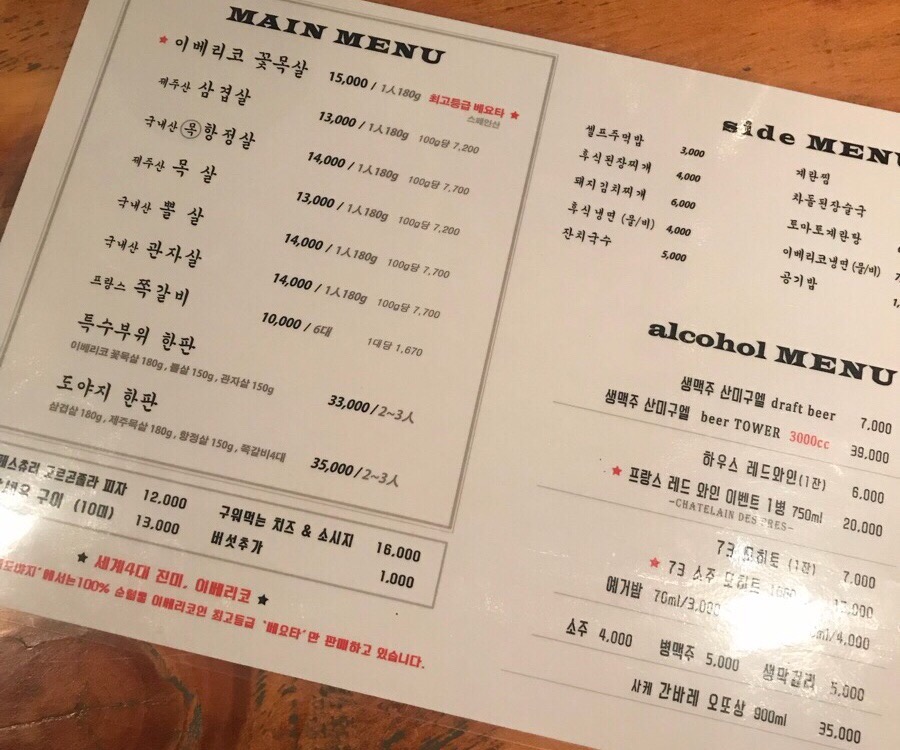 MAIN MENU
★ 이베리코 꽃목살 15,000 / 1人180g 최고등급 베요타 ★
스페인산
제주산 삼겹살 13,000 / 1人180g 100g당 7,200
국내산 목 항정살 14,000 / 1人180g 100g당 7,700
제주산 목 살 13,000 / 1人180g 100g당 7,200
국내산 뽈 살 14,000 / 1人180g 100g당 7,700
국내산 관자살 14,000 / 1人180g 100g당 7,700
프랑스 쪽갈비 10,000 / 6대 1대당 1,670
특수부위 한판 33,000 / 2~3人
이베리코 꽃목살 180g, 뽈살 150g, 관자살 150g
도야지 한판 35,000 / 2~3人
삼겹살 180g, 제주목살 180g, 항정살 150g, 쪽갈비4대
고르곤졸라 피자 12,000
구이 (10미) 13,000
구워먹는 치즈 & 소시지 16,000
버섯추가 1,000
★ 세계4대 진미, 이베리코 ★
에서는100% 순혈통 이베리코인 최고등급 '베요타'만 판매하고 있습니다.
side MENU
셀프주먹밥 3,000
후식된장찌개 4,000
돼지김치찌개 6,000
후식냉면 (물/비) 4,000
잔치국수 5,000
계란찜
차돌된장술국
토마토계란탕
이베리코냉면(물/비)
공기밥
alcohol MENU
생맥주 산미구엘 draft beer 7,000
생맥주 산미구엘 beer TOWER 3000cc 39,000
하우스 레드와인(1잔) 6,000
★ 프랑스 레드 와인 이벤트 1병 750ml 20,000
-CHATELAIN DES PRES-
73 모히토 (1잔) 7,000
★ 73 소주 모히토
예거밤 70ml/3,000 ml/4,000
소주 4,000 병맥주 5,000 생막걸리 5,000
사케 간바레 오또상 900ml 35,000